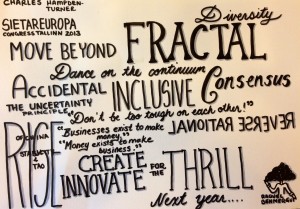 CHARLES HAMPDEN-
TURNER
SIETAREUROPA
CONGRESS TALLINN 2013
Diversity
MOVE BEYOND FRACTAL
Dance on the continuum
ACCIDENTAL INCLUSIVE Consensus
THE UNCERTAINTY
PRINCIPLE
"Don't be too tough on each other!"
RISE
OF CHINA
STARBUCKS
&
TAO
"Businesses exist to make
money."
"Money exists to make
business."
REVERSE RATIONAL
CREATE
INNOVATE
FOR
THE
THRILL
Next year....